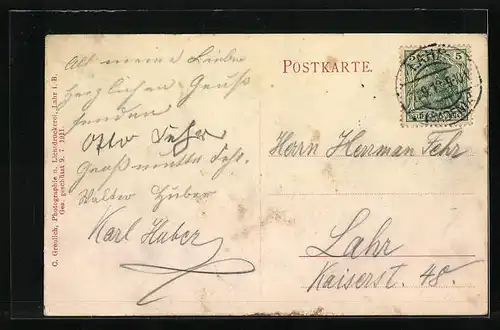 All meine Lieben
herzlichen Gruß
senden
Otto Fehr
Großmutter Fehr.
Walter Huber
Karl Huber
POSTKARTE.
5
Herrn Herrman Fehr
Lahr
Kaiserst. 48.
G. Greulich, Photographie u. Lichtdruckerei, Lahr i. B.
Ges. geschützt 9. 7. 1911.